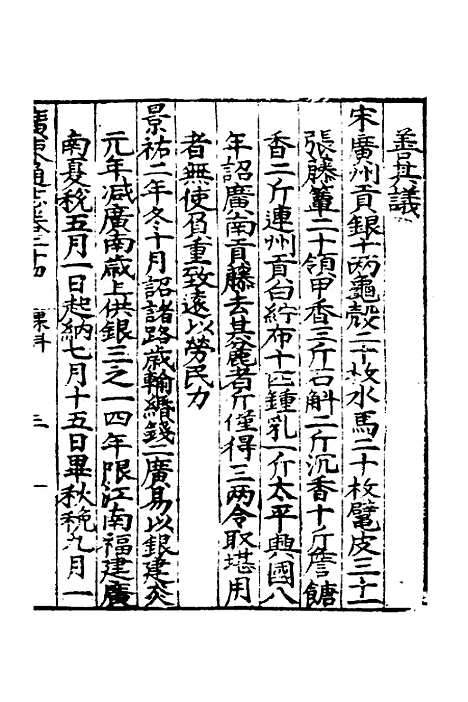 善其議
宋廣州貢銀十兩龜殼二十枚水馬二十枚鼊皮三十
張藤簟二十領甲香三斤石斛二斤沉香十斤詹餹
香二斤連州貢白紵布十匹鍾乳一斤太平興國八
年詔廣南貢藤去其麄者斤僅得三兩令取堪用
者無使負重致遠以勞民力
景祐二年冬十月詔諸路歲輸緡錢二廣易以銀建炎
元年减廣南歲上供銀三之一四年限江南福建廣
南夏稅五月一日起納七月十五日畢秋稅九月一
廣東通志卷二十四 課料 三